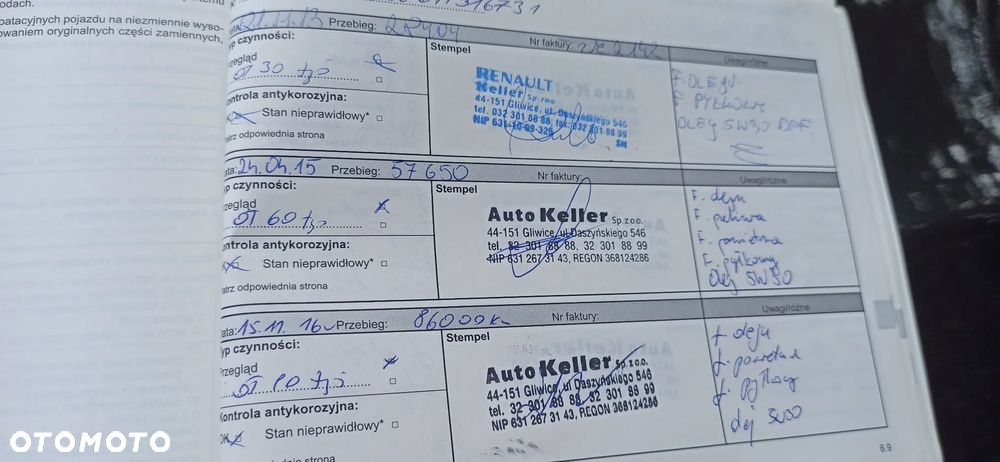 odach.
patacyjnych pojazdu na niezmiennie wyso-
owaniem oryginalnych części zamiennych,
ata: 21.11.13 Przebieg: 28404 Nr faktury:
yp czynności:
Stempel
Uwagi/różne
rzegląd
OT 30 tyś
ontrola antykorozyjna:
Stan nieprawidłowy*
atrz odpowiednia strona
RENAULT
Keller Sp. z o.o.
44-151 Gliwice, ul. Daszyńskiego 546
tel. 032 301 88 88, fax: 032 301 88 99
NIP 631-10-09-326
SM
F. OLEJU
F. PYŁKOWY
OLEJ 5W30 DPF
ata: 24.04.15 Przebieg: 57650 Nr faktury:
yp czynności:
Stempel
Uwagi/różne
rzegląd
OT 60 tyś
ontrola antykorozyjna:
OK Stan nieprawidłowy*
atrz odpowiednia strona
Auto Keller Sp z o.o.
44-151 Gliwice, ul Daszyńskiego 546
tel. 32 301 88 88, 32 301 88 99
NIP 631 267 31 43, REGON 368124286
F. oleju
F. paliwa
F. powietrza
F. pyłkowy
Olej 5W30
ata: 15.11.16 Przebieg: 86000k Nr faktury:
yp czynności:
Stempel
Uwagi/różne
rzegląd
ontrola antykorozyjna:
OK Stan nieprawidłowy*
strona
Auto Keller Sp z o.o.
44-151 Gliwice, ul Daszyńskiego 546
tel. 32 301 88 88, 32 301 88 99
NIP 631 267 31 43, REGON 368124286
f. oleju
f. powietrza
f. pyłkowy
olej 5W30
6.9
OTOMOTO